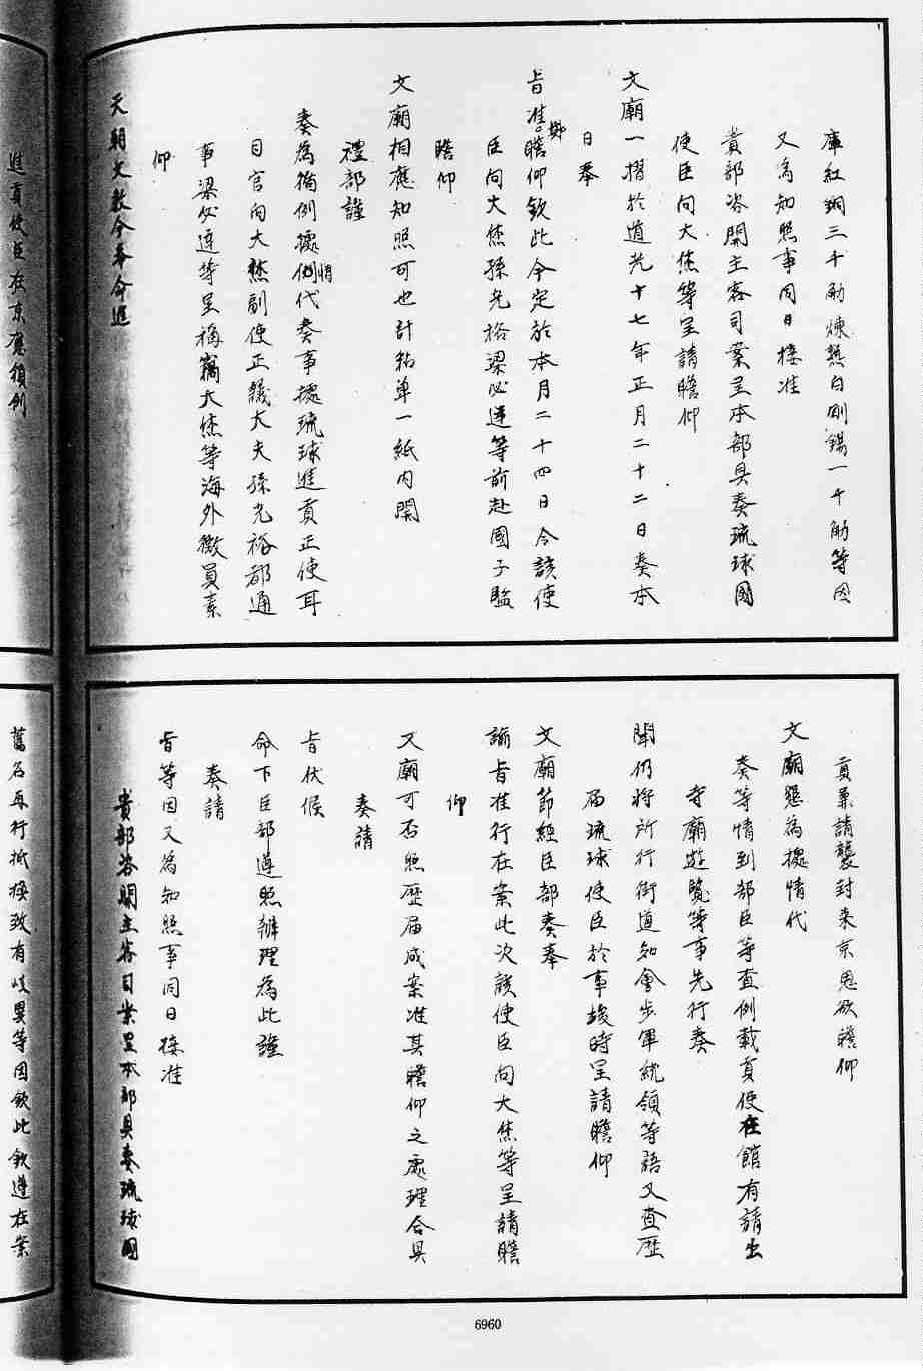 庫紅銅三千觔煉熟白剛錫一千觔等因
又為知照事同日接准
貴部咨開主客司案呈本部具奏琉球國
使臣向大烋等呈請瞻仰
文廟一摺於道光十七年正月二十二日奏本
日奉
旨准瞻仰欽此今定於本月二十四日令該使
臣向大烋孫光裕梁必達等前赴國子監
瞻仰
文廟相應知照可也計粘单一紙內開
禮部謹
奏為循例據情代奏事據琉球進貢正使耳
目官向大烋副使正議大夫孫光裕都通
事梁必達等呈稱竊大烋等海外微員素
仰
天朝文教今奉命進
貢兼請襲封来京思欲瞻仰
文廟懇為據情代
奏等情到部臣等查例載貢使在館有請出
寺廟遊覽等事先行奏
聞仍将所行街道知會步軍統領等語又查歷
届琉球使臣於事竣時呈請瞻仰
文廟節經臣部奏奉
諭旨准行在案此次該使臣向大烋等呈請瞻
仰
文廟可否照歷届成案准其瞻仰之處理合具
奏請
旨伏候
命下臣部遵照辦理為此謹
奏請
旨等因又為知照事同日接准
貴部咨開主客司案呈本部具奏琉球國
進貢使臣在京應領創
舊名再行抵換致有歧異等因欽此欽遵在案
6960